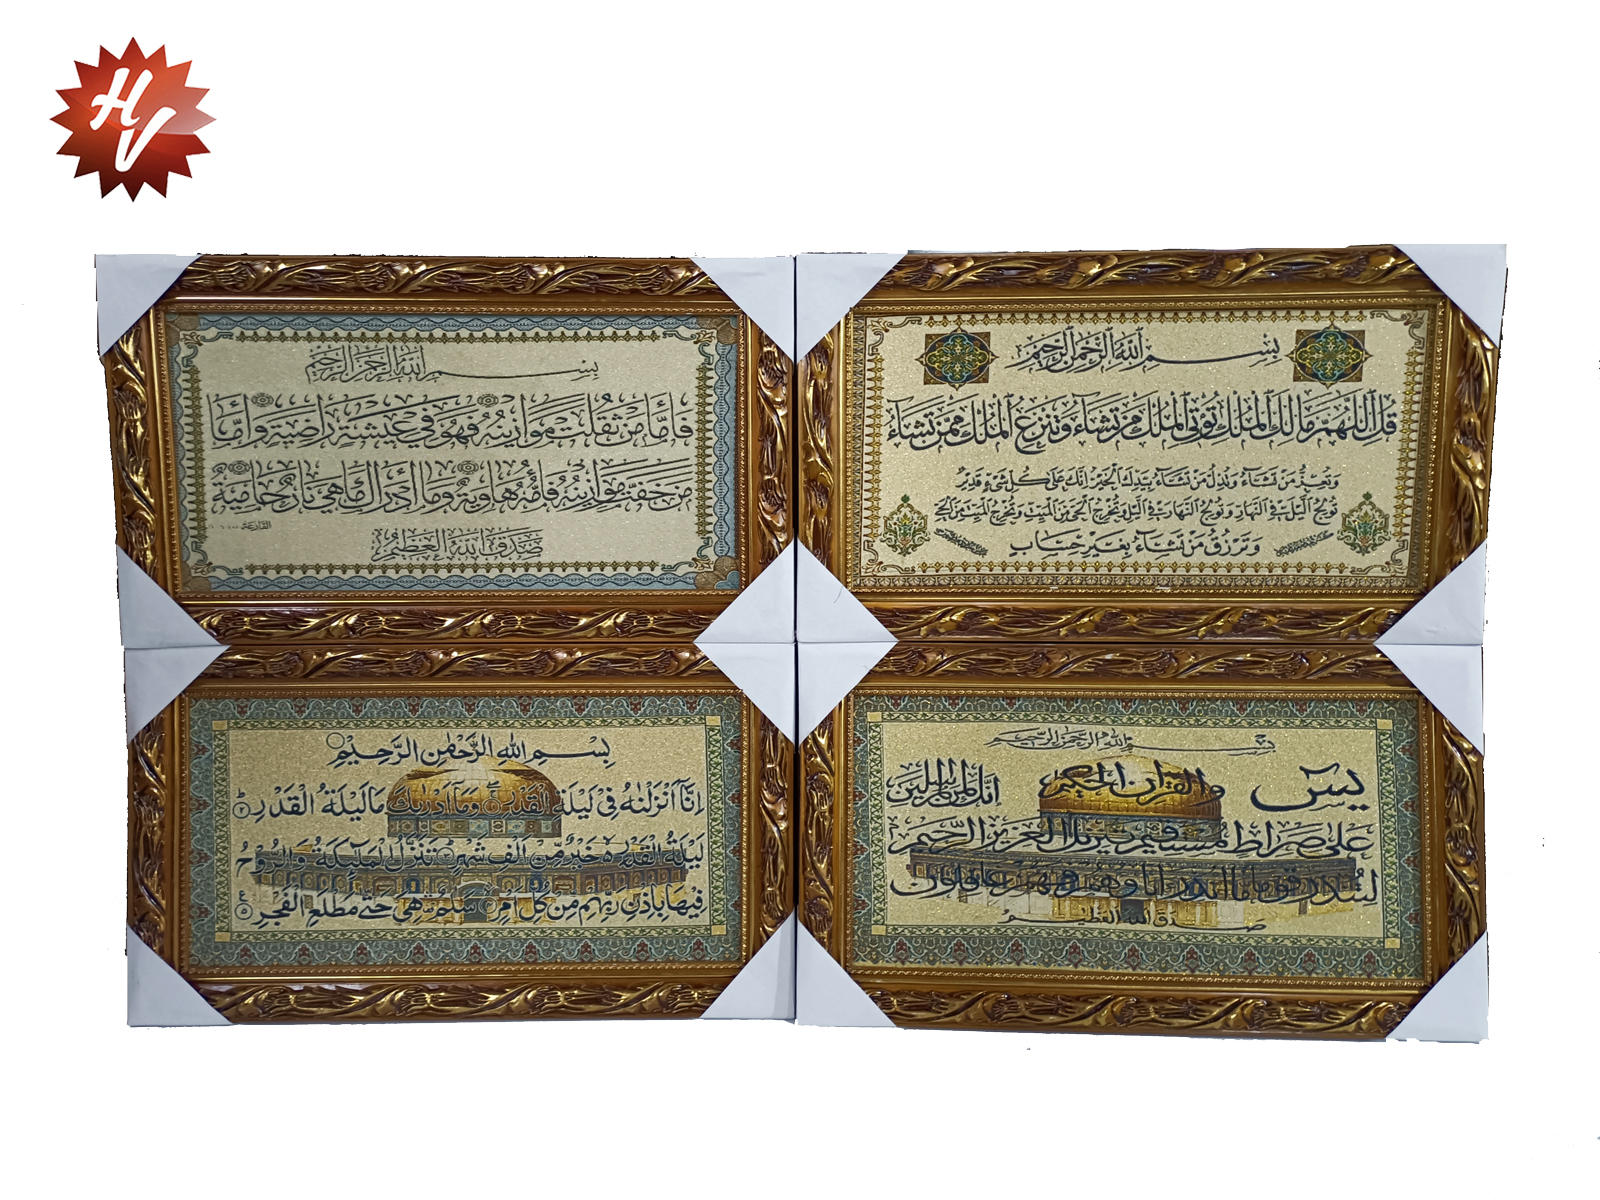 HV
بسم الله الرحمن الرحيم
فأما من ثقلت موازينه فهو في عيشة راضية وأما
من خفت موازينه فأمه هاوية وما أدراك ما هي نار حامية
القارعة
صدق الله العظيم
بسم الله الرحمن الرحيم
قل اللهم مالك الملك تؤتي الملك من تشاء وتنزع الملك ممن تشاء
وتعز من تشاء وتذل من تشاء بيدك الخير إنك على كل شيء قدير
تولج الليل في النهار وتولج النهار في الليل وتخرج الحي من الميت وتخرج الميت من الحي
وترزق من تشاء بغير حساب
بِسْمِ اللهِ الرَّحْمٰنِ الرَّحِيْمِ
اِنَّا اَنْزَلْنٰهُ فِى لَيْلَةِ الْقَدْرِ وَمَا اَدْرٰىكَ مَا لَيْلَةُ الْقَدْرِ
لَيْلَةُ الْقَدْرِ خَيْرٌ مِّنْ اَلْفِ شَهْرٍ تَنَزَّلُ الْمَلٰٓئِكَةُ وَالرُّوْحُ
فِيْهَا بِاِذْنِ رَبِّهِمْ مِنْ كُلِّ اَمْرٍ سَلٰمٌ هِىَ حَتّٰى مَطْلَعِ الْفَجْرِ
بسم الله الرحمن الرحيم
يس والقرآن الحكيم إنك لمن المرسلين
على صراط مستقيم تنزيل العزيز الرحيم
لتنذر قوما ما أنذر آباؤهم فهم غافلون
صدق الله العظيم